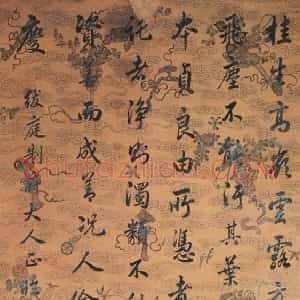 桂生高嶺雲露方
飛塵不能汙其葉
本貞良由所憑者
化者淨則濁類不能
資善而成善況人倫
慶
紱庭制府大人正
Shuge2hao.COM